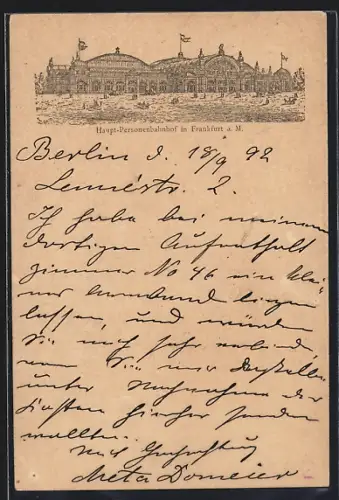 Haupt-Personenbahnhof in Frankfurt a. M.
Berlin d. 18/9 92
Lennéstr. 2.
Ich habe bei meinem
dortigen Aufenthalt
Zimmer No 46 ein klei-
nes Armband liegen
lassen, und würden
Sie mich sehr verbinden
wenn Sie mir dasselbe
unter Nachnahme der
Kosten hierher senden
wollten.
Mit Hochachtung
Meta Domeier